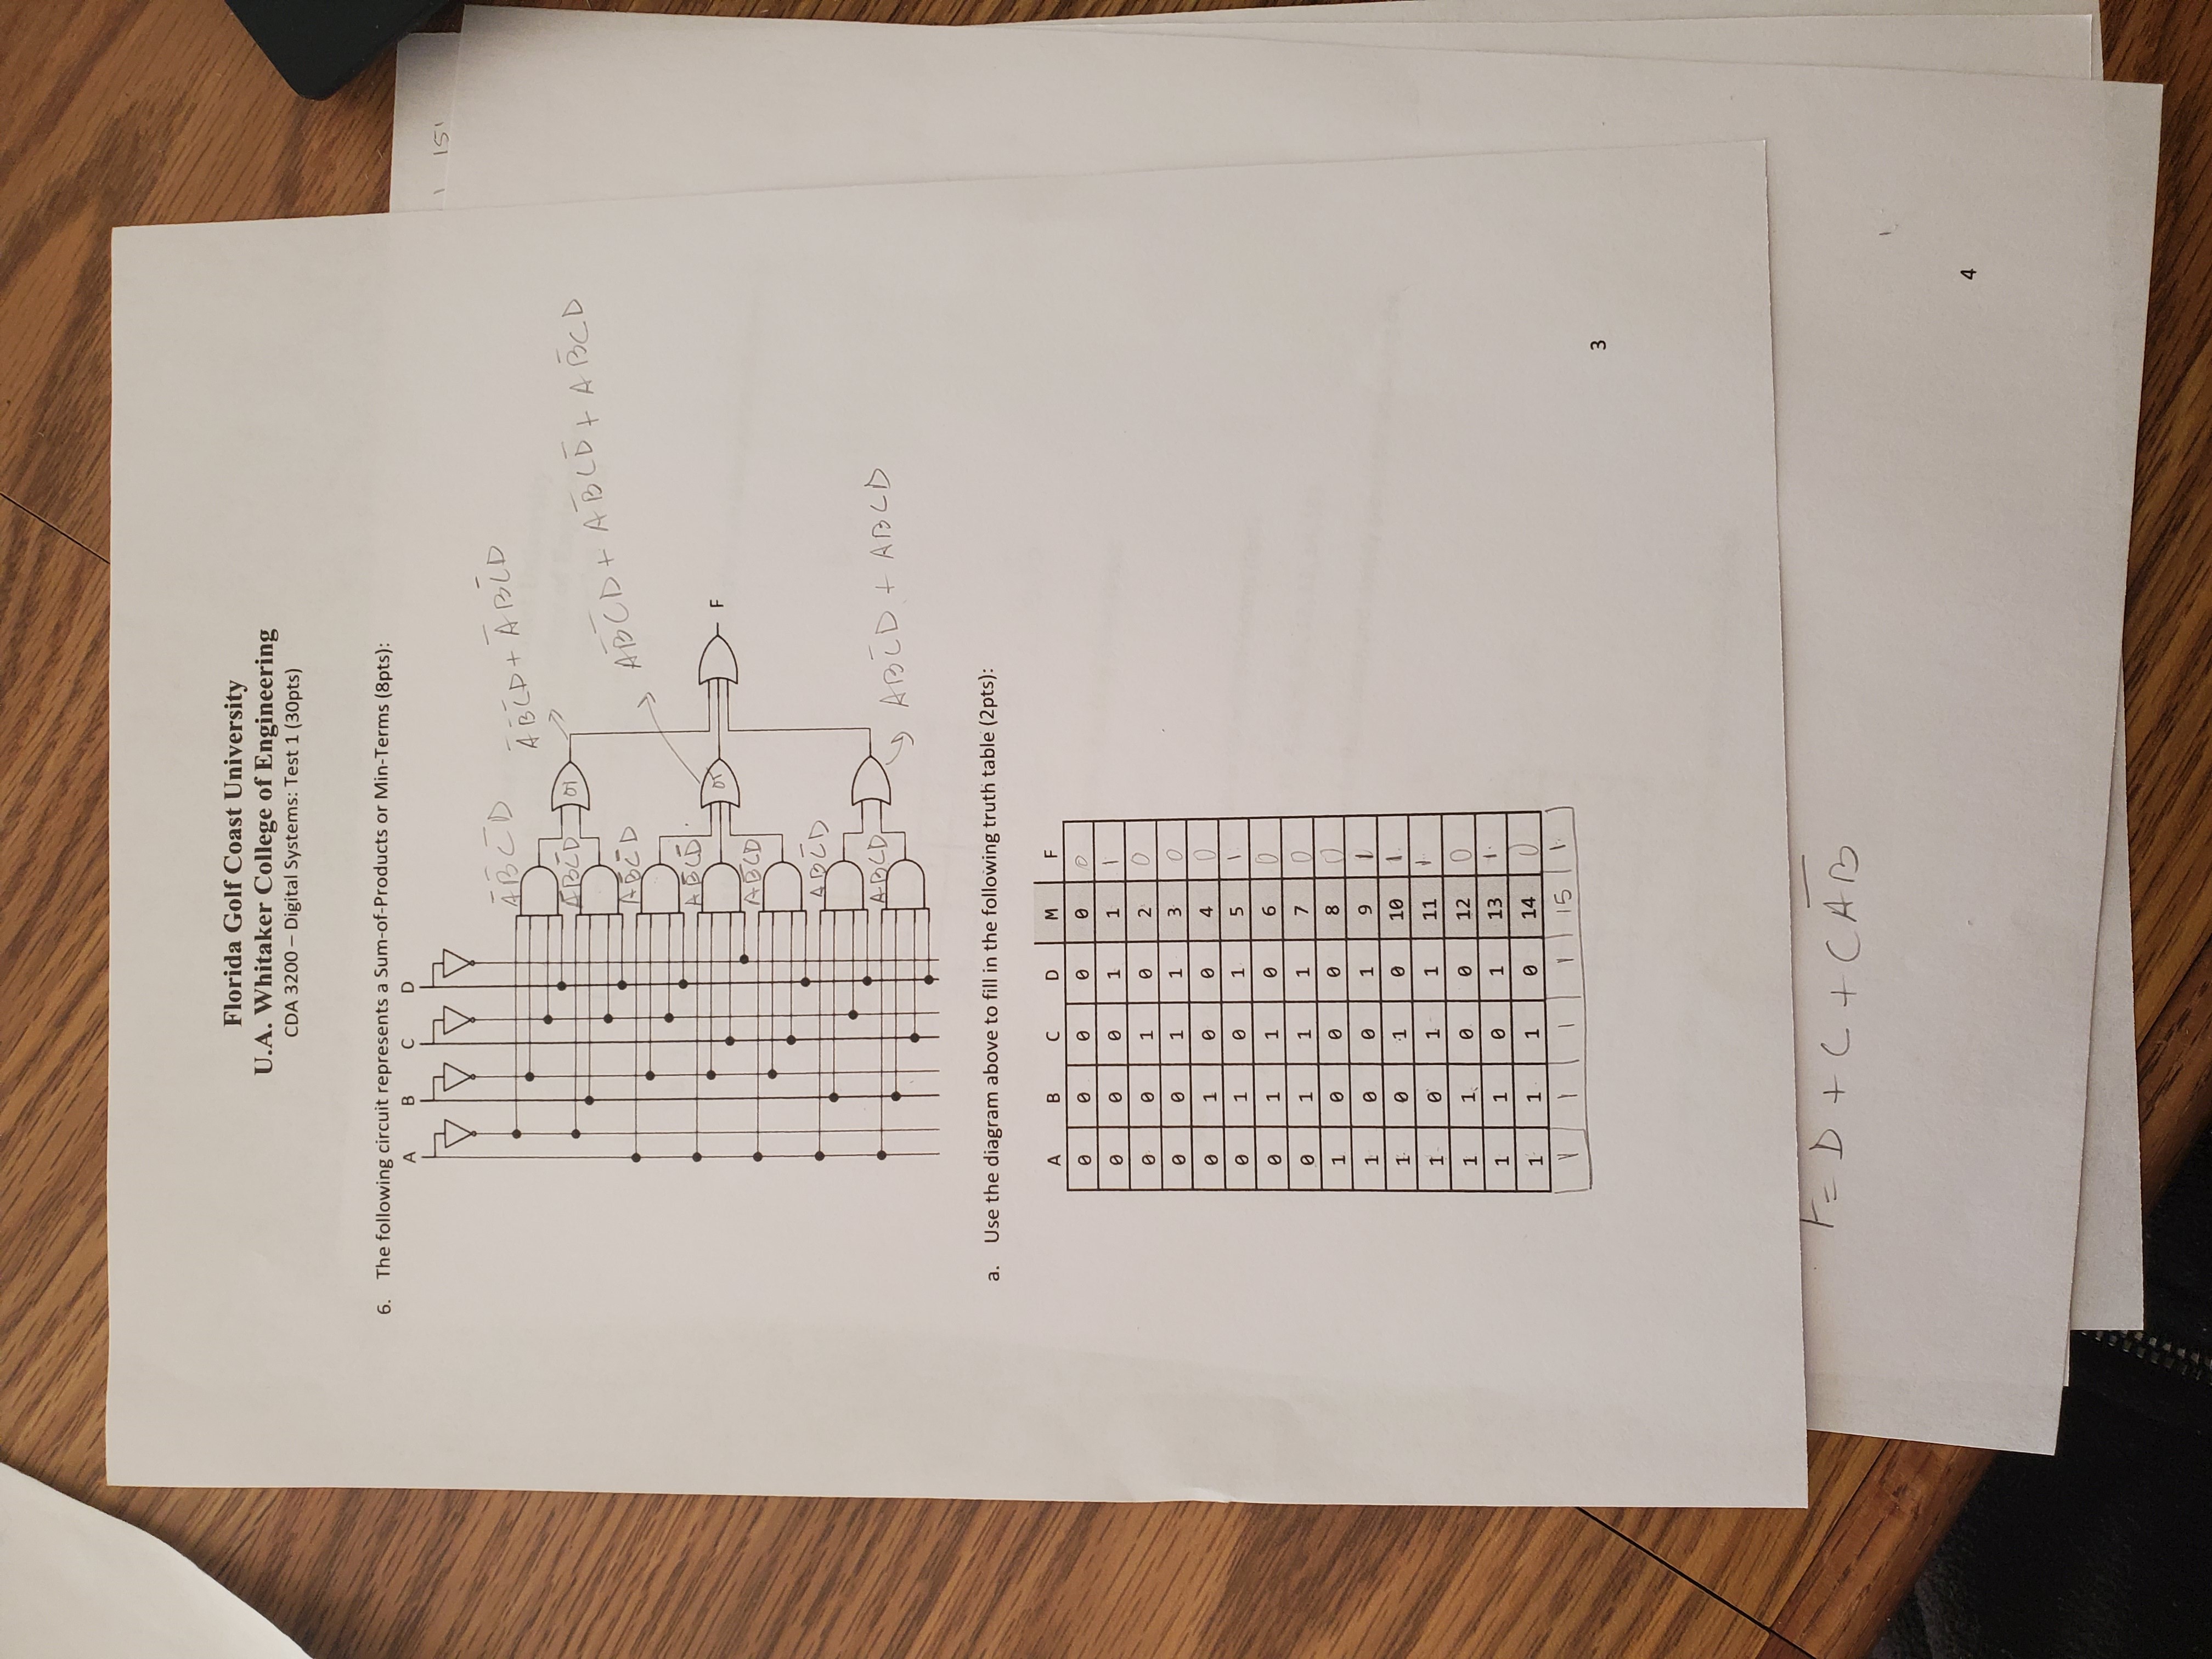 Florida Golf Coast University
U.A. Whitaker College of Engineering
CDA 3200 – Digital Systems: Test 1 (30pts)
6. The following circuit represents a Sum-of-Products or Min-Terms (8pts):
A B C D
A̅B̅C̅D
A̅B̅C̅D + A̅BC̅D
or
A̅BC̅D
AB̅C̅D
AB̅C̅D + AB̅CD̅ + AB̅CD
or
AB̅CD̅
F
AB̅CD
ABC̅D
ABC̅D + ABCD
ABCD
a. Use the diagram above to fill in the following truth table (2pts):
A B C D M F
0 0 0 0 0 0
0 0 0 1 1 1
0 0 1 0 2 0
0 0 1 1 3 0
0 1 0 0 4 0
0 1 0 1 5 1
0 1 1 0 6 0
0 1 1 1 7 0
1 0 0 0 8 0
1 0 0 1 9 1
1 0 1 0 10 1
1 0 1 1 11 1
1 1 0 0 12 0
1 1 0 1 13 1
1 1 1 0 14 0
1 1 1 1 15 1
3
F = D + C + CAB̅
4
1 15